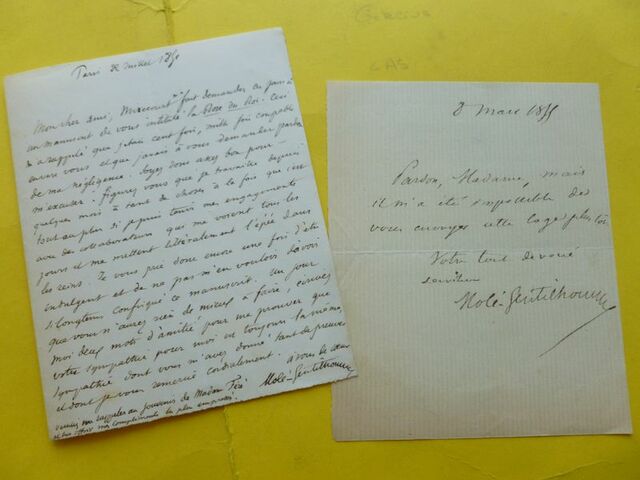 Gercins
CAS
Paris 2 juillet 1850
Mon cher ami, Mirecourt m'a fait demander ces jours-ci
un manuscrit de vous intitulé la Rose du Roi. Ceci
m'a rappelé que j'étais cent fois, mille fois coupable
envers vous et que j'avais à vous demander pardon
de ma négligence. Soyez donc assez bon pour
m'excuser. Figurez vous que je travaille depuis
quelques mois à tant de choses à la fois que c'est
tout au plus si je puis tenir mes engagements
avec des collaborateurs qui me voient tous les
jours et me mettent littéralement l'épée dans
les reins. Je vous prie donc encore une fois d'être
indulgent et de ne pas m'en vouloir d'avoir
si longtems confisqué ce manuscrit. Un jour
que vous n'aurez rien de mieux à faire, écrivez
moi deux mots d'amitié, pour me prouver que
votre sympathie pour moi est toujours la même,
sympathie dont vous m'avez donné tant de preuves
et dont je vous remercie cordialement.
à vous de cœur
Molé-Gentilhomme
veuillez me rappeler au souvenir de Madame
et lui offrir mes compliments les plus empressés.
8 Mars 1855
Pardon, Madame, mais
il m'a été impossible de
vous envoyer cette loge plus tôt.
Votre tout dévoué
serviteur
Molé-Gentilhomme